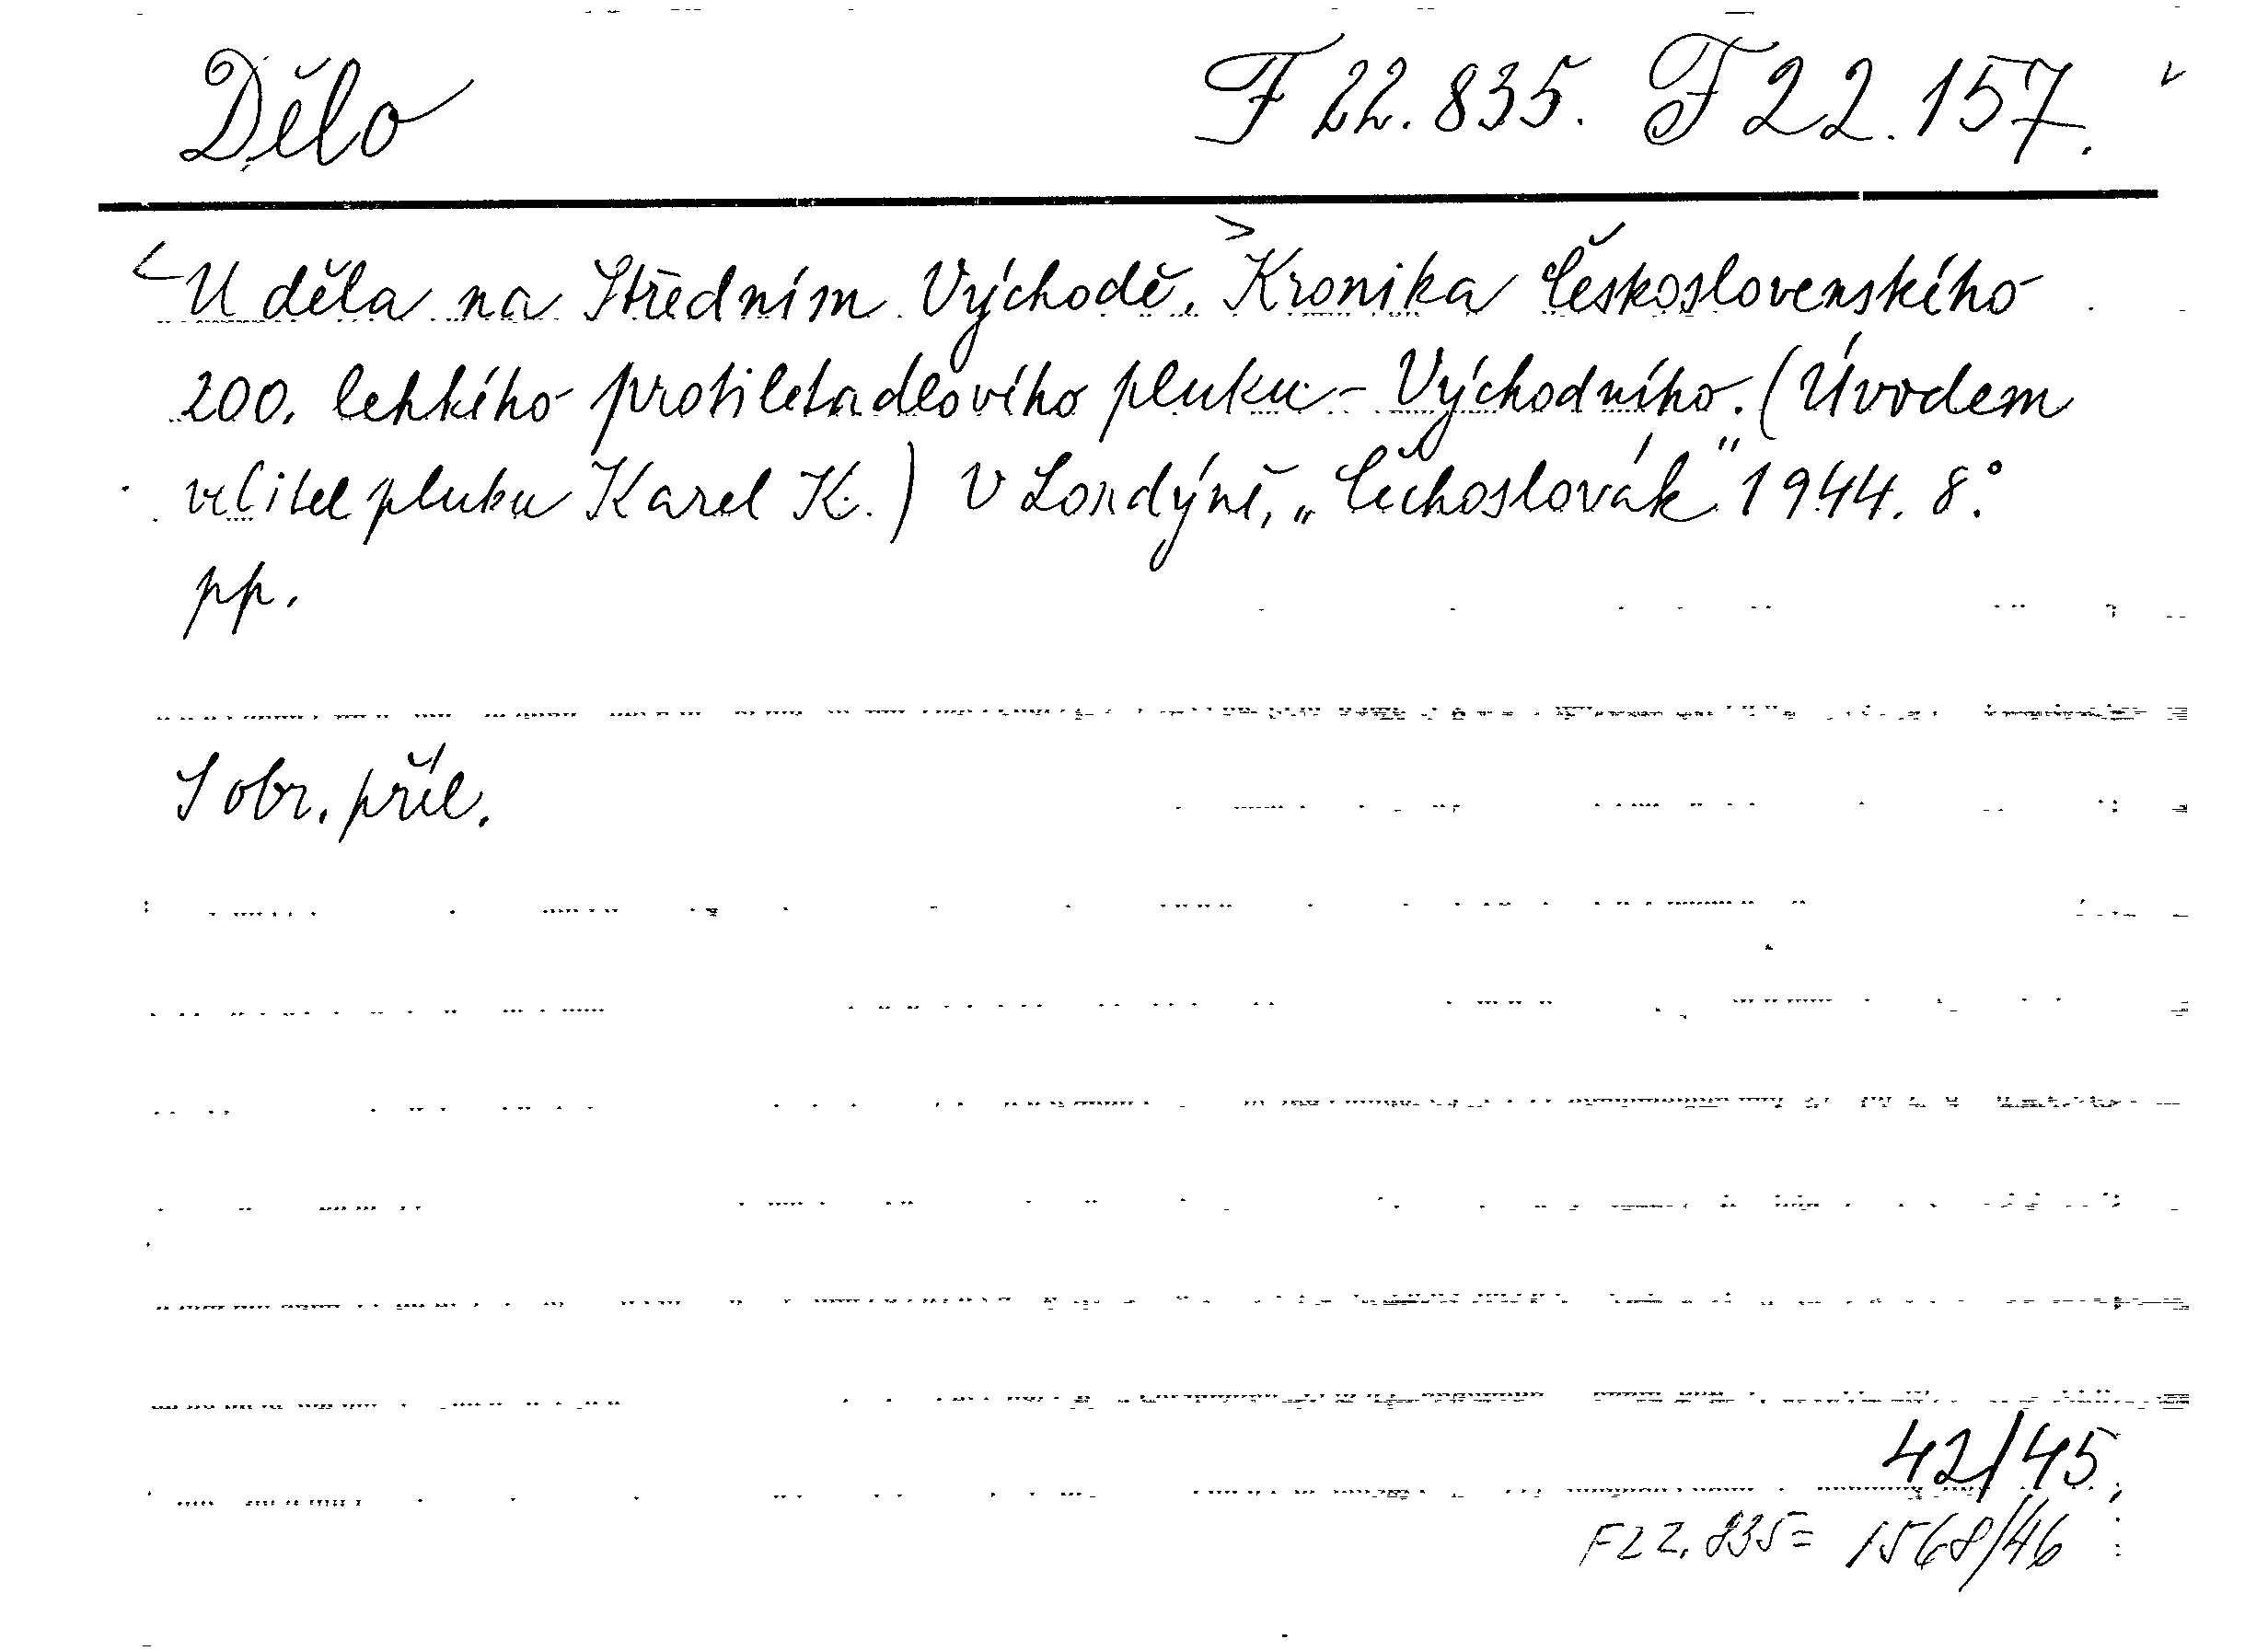 Dělo F 22.835. F 22.157.
<U děla na Středním Východě.> Kronika Československého
200. lehkého protiletadlového pluku - Východního. (Úvodem
velitel pluku Karel K.) V Londýně, „Čechoslovák" 1944. 8°.
pp.
S obr. příl.
42/45.
F22.835 = 1568/46